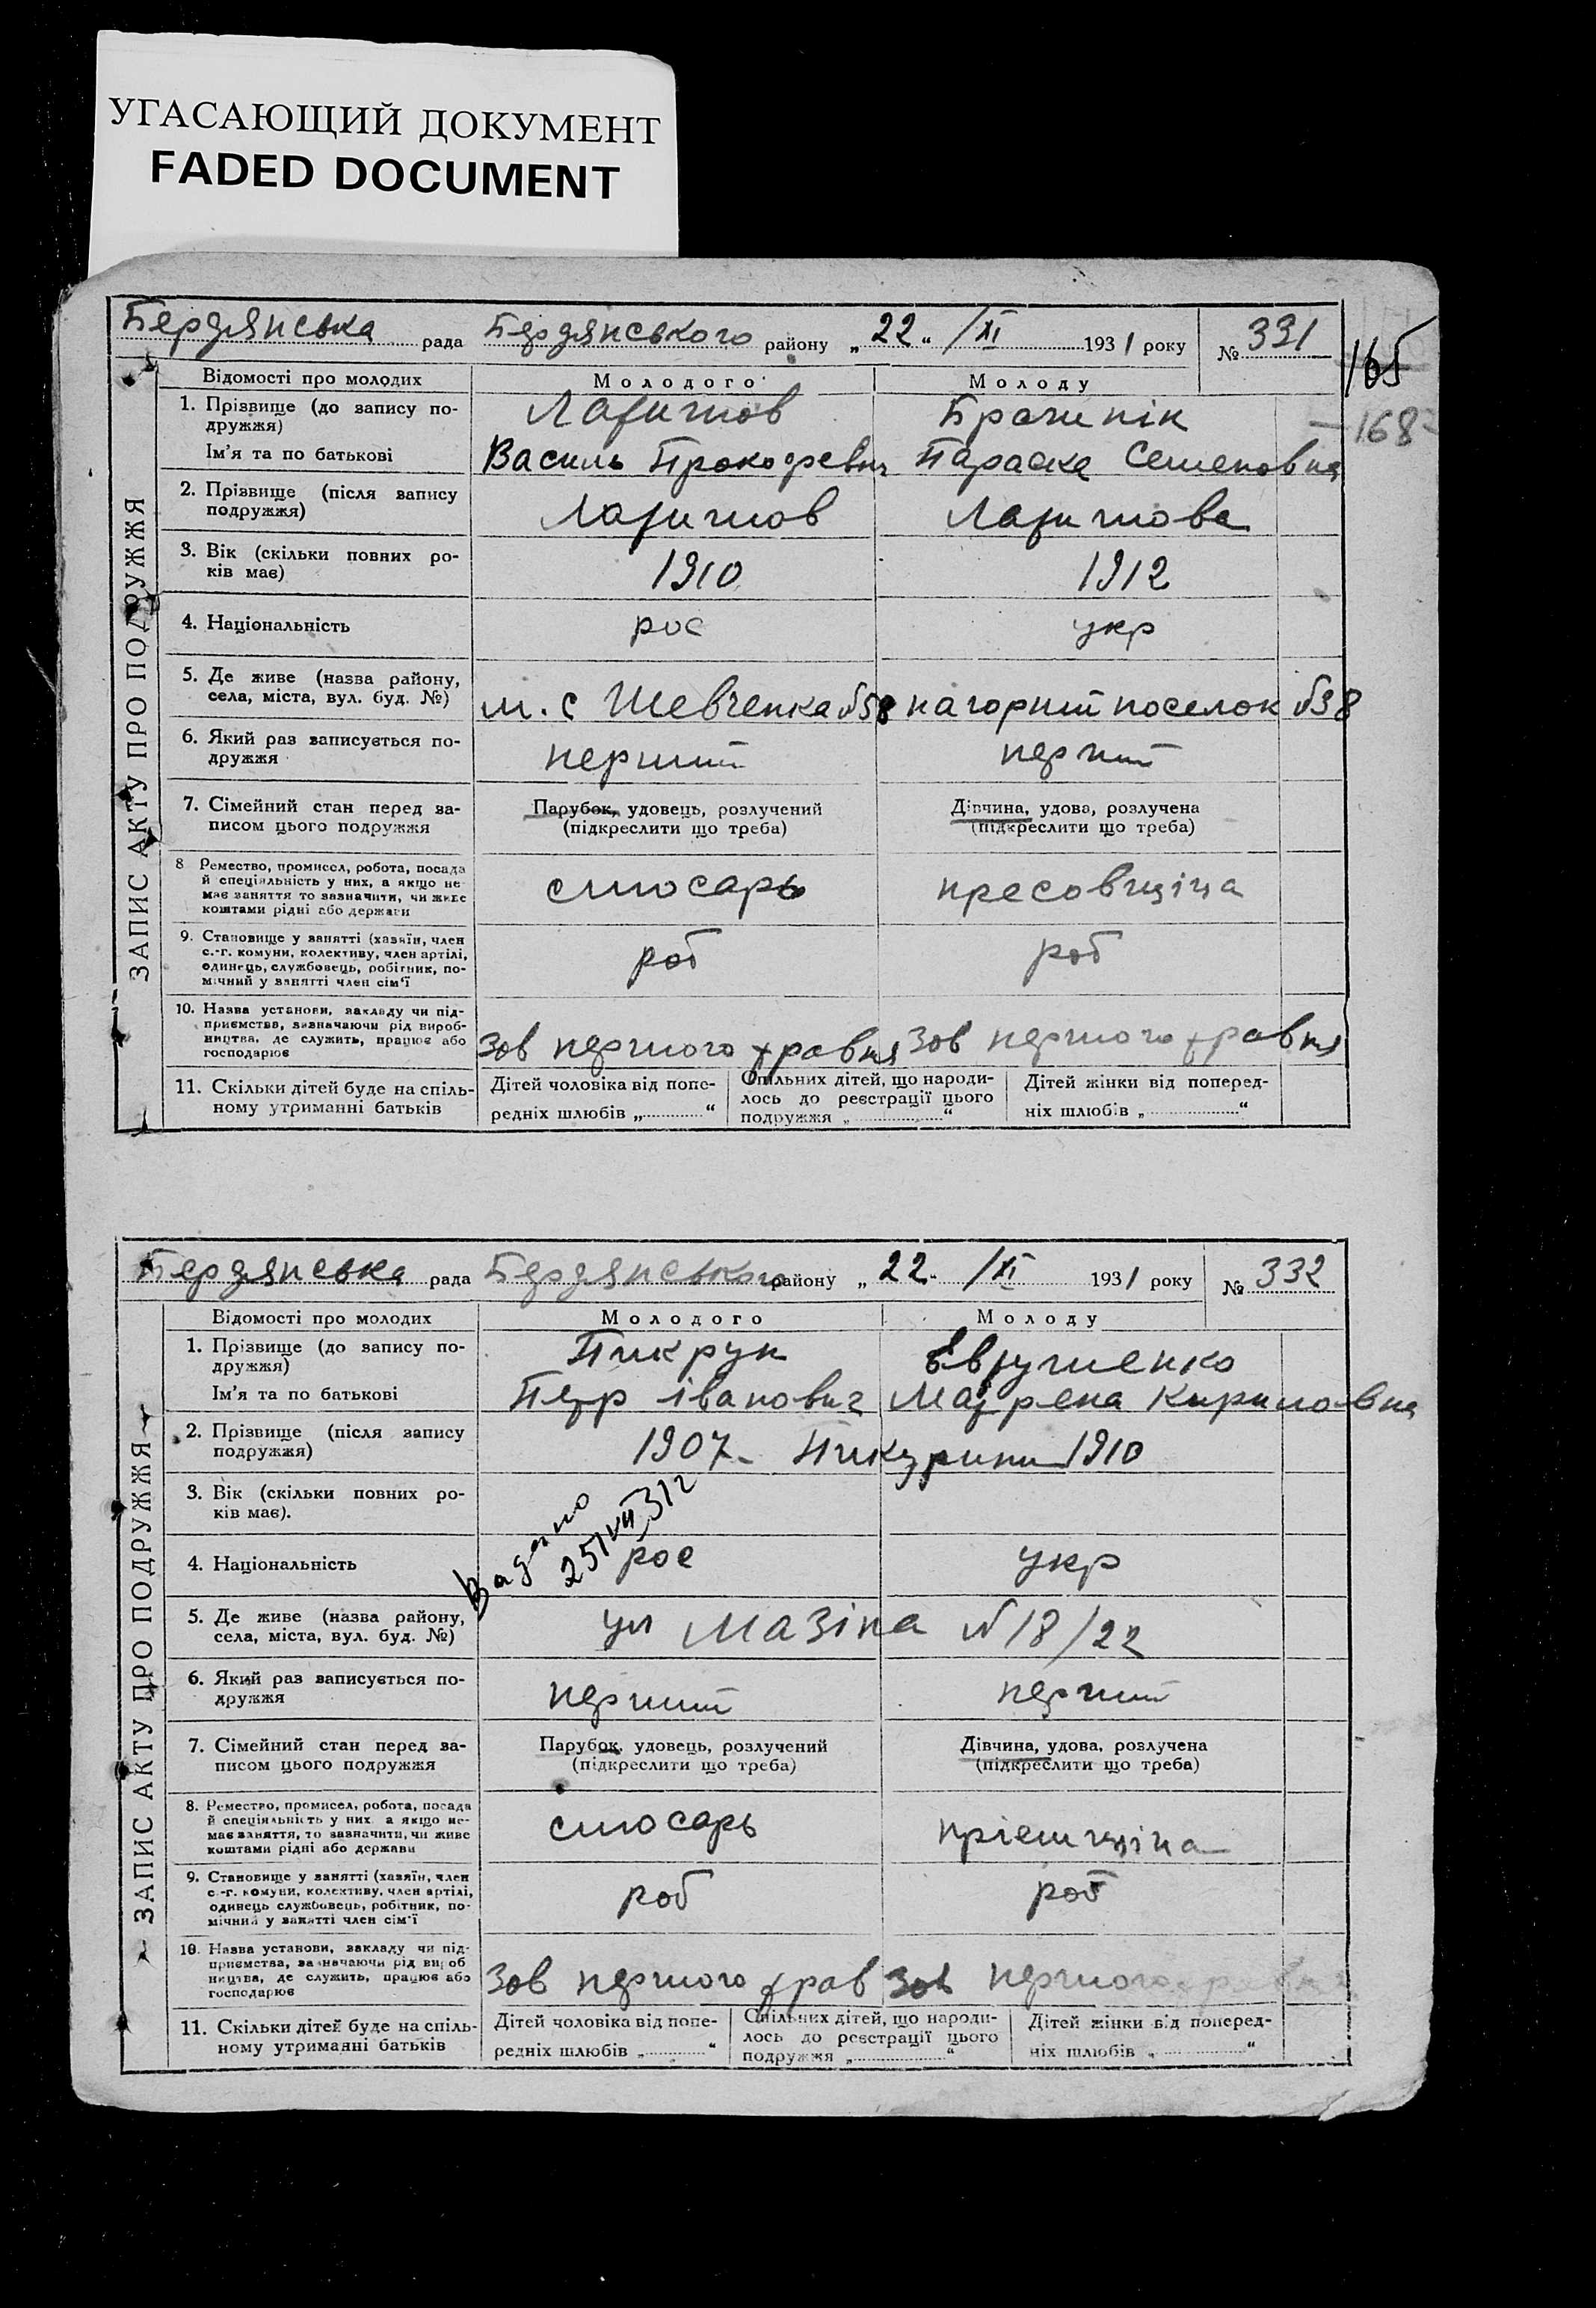 УГАСАЮЩИЙ ДОКУМЕНТ
FADED DOCUMENT
165
168
ЗАПИС АКТУ ПРО ПОДРУЖЖЯ
Бердянська рада Бердянського району „22“ /XI 1931 року № 331
Відомості про молодих Молодого Молоду
1. Прізвище (до запису подружжя)
Ім'я та по батькові
Василь Прокофевич Параска Семеновна
2. Прізвище (після запису
подружжя)
3. Вік (скільки повних років має) 1910 1912
4. Національність рос укр
5. Де живе (назва району,
села, міста, вул. буд. №) Шевченка №58 нагорний поселок №38
6. Який раз записується подружжя перший перший
7. Сімейний стан перед записом цього подружжя
Парубок, удовець, розлучений Дівчина, удова, розлучена
(підкреслити що треба) (підкреслити що треба)
8 Ремество, промисел, робота, посада
й спеціяльність у них, а якщо немає заняття то зазначити, чи живе
коштами рідні або держави слюсарь пресовщіца
9. Становище у занятті (хазяїн, член
с.-г. комуни, колективу, член артілі,
одинець, службовець, робітник, помічний у занятті член сім'ї роб роб
10. Назва установи, закладу чи підприємства, зазначаючи рід виробництва, де служить, працює або
господарює Зов першого травня Зов першого травня
11. Скільки дітей буде на спільному утриманні батьків
Дітей чоловіка від попередніх шлюбів „ “
Спільних дітей, що народилось до реєстрації цього
подружжя „ “
Дітей жінки від попередніх шлюбів „ “
ЗАПИС АКТУ ПРО ПОДРУЖЖЯ
Бердянська рада Бердянського району „22“ /XI 1931 року № 332
Відомості про молодих Молодого Молоду
1. Прізвище (до запису подружжя)
Ім'я та по батькові
Петр Іванович Кириловна
2. Прізвище (після запису
подружжя) 1907 1910
3. Вік (скільки повних років має).
4. Національність рос укр
5. Де живе (назва району,
села, міста, вул. буд. №) ул Мазіна №18/22
6. Який раз записується подружжя перший перший
7. Сімейний стан перед записом цього подружжя
Парубок, удовець, розлучений Дівчина, удова, розлучена
(підкреслити що треба) (підкреслити що треба)
8. Ремество, промисел, робота, посада
й спеціяльність у них а якщо немає заняття, то зазначити, чи живе
коштами рідні або держави слюсарь
9. Становище у занятті (хазяїн, член
с.-г. комуни, колективу, член артілі,
одинець службовець, робітник, помічний у занятті член сім'ї роб роб
10. Назва установи, закладу чи підприємства, зазначаючи рід виробництва, де служить, працює або
господарює Зов першого трав Зов першого
11. Скільки дітей буде на спільному утриманні батьків
Дітей чоловіка від попередніх шлюбів „ “
Спільних дітей, що народилось до реєстрації цього
подружжя „ “
Дітей жінки від попередніх шлюбів „ “